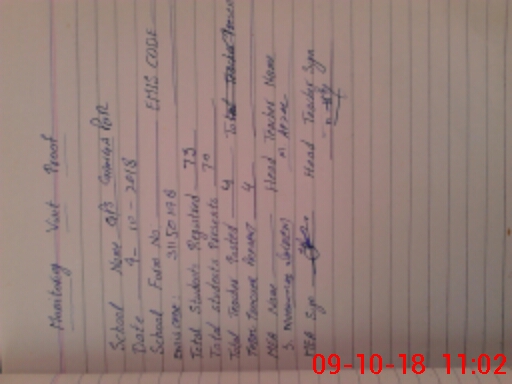 Monitoring Visit Proof
School Name GPS
Date 9-10-2018
School Form No EMIS CODE
EMIS CODE: 31150178
Total Students Registered 73
Total Students Presents 70
Total Teacher Posted 4
Total Teacher Present 4
MEA Name Head Teacher Name
MEA Sign Head Teacher Sign
09-10-18 11:02